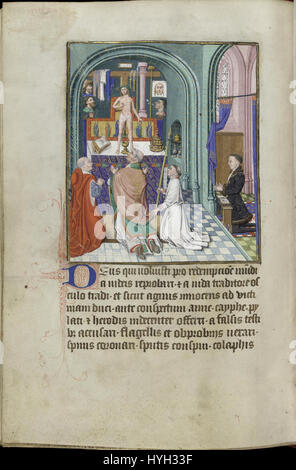 Deus qui voluisti pro redemptiōe mūdi
a iudeis reprobari & a iuda traditore os
culo tradi et sicut agnus innocens ad victi
mam duci. ante conspectum anne. cayphe. py
lati & herodis indecenter offerri. a falsis testi
b9 accusari. flagellis et obprobrijs vexari.
spinis coronari. sputis conspui. colaphis
alamy
Image ID: HYH33F
www.alamy.com